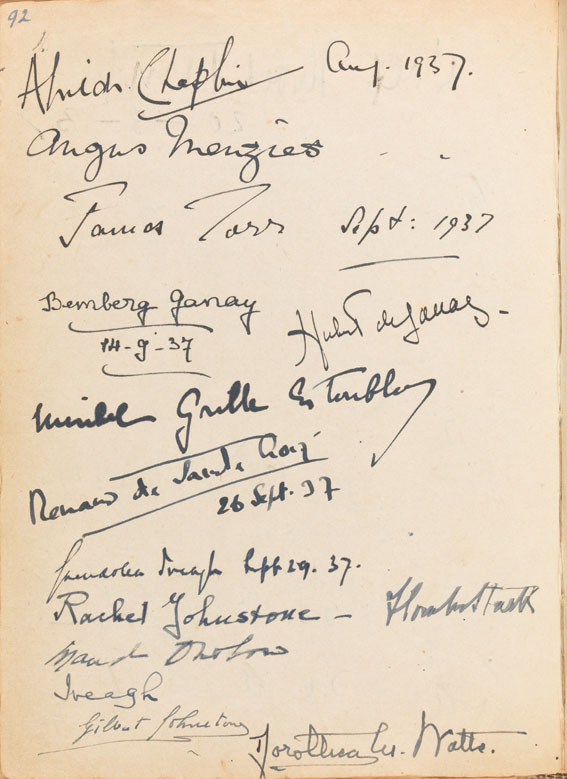 92
Chaplin Aug. 1937.
Angus Menzies
James Torr Sept: 1937
Bemberg Ganay
14-9-37
Hubert de Ganay
Grille Estoublon
Renaud de Sainte Croix
26 Sept. 37
Gwendolen Iveagh Sept 29. 37.
Rachel Johnstone
Maud
Iveagh
Gilbert Johnstone
Dorothea M. Watts.